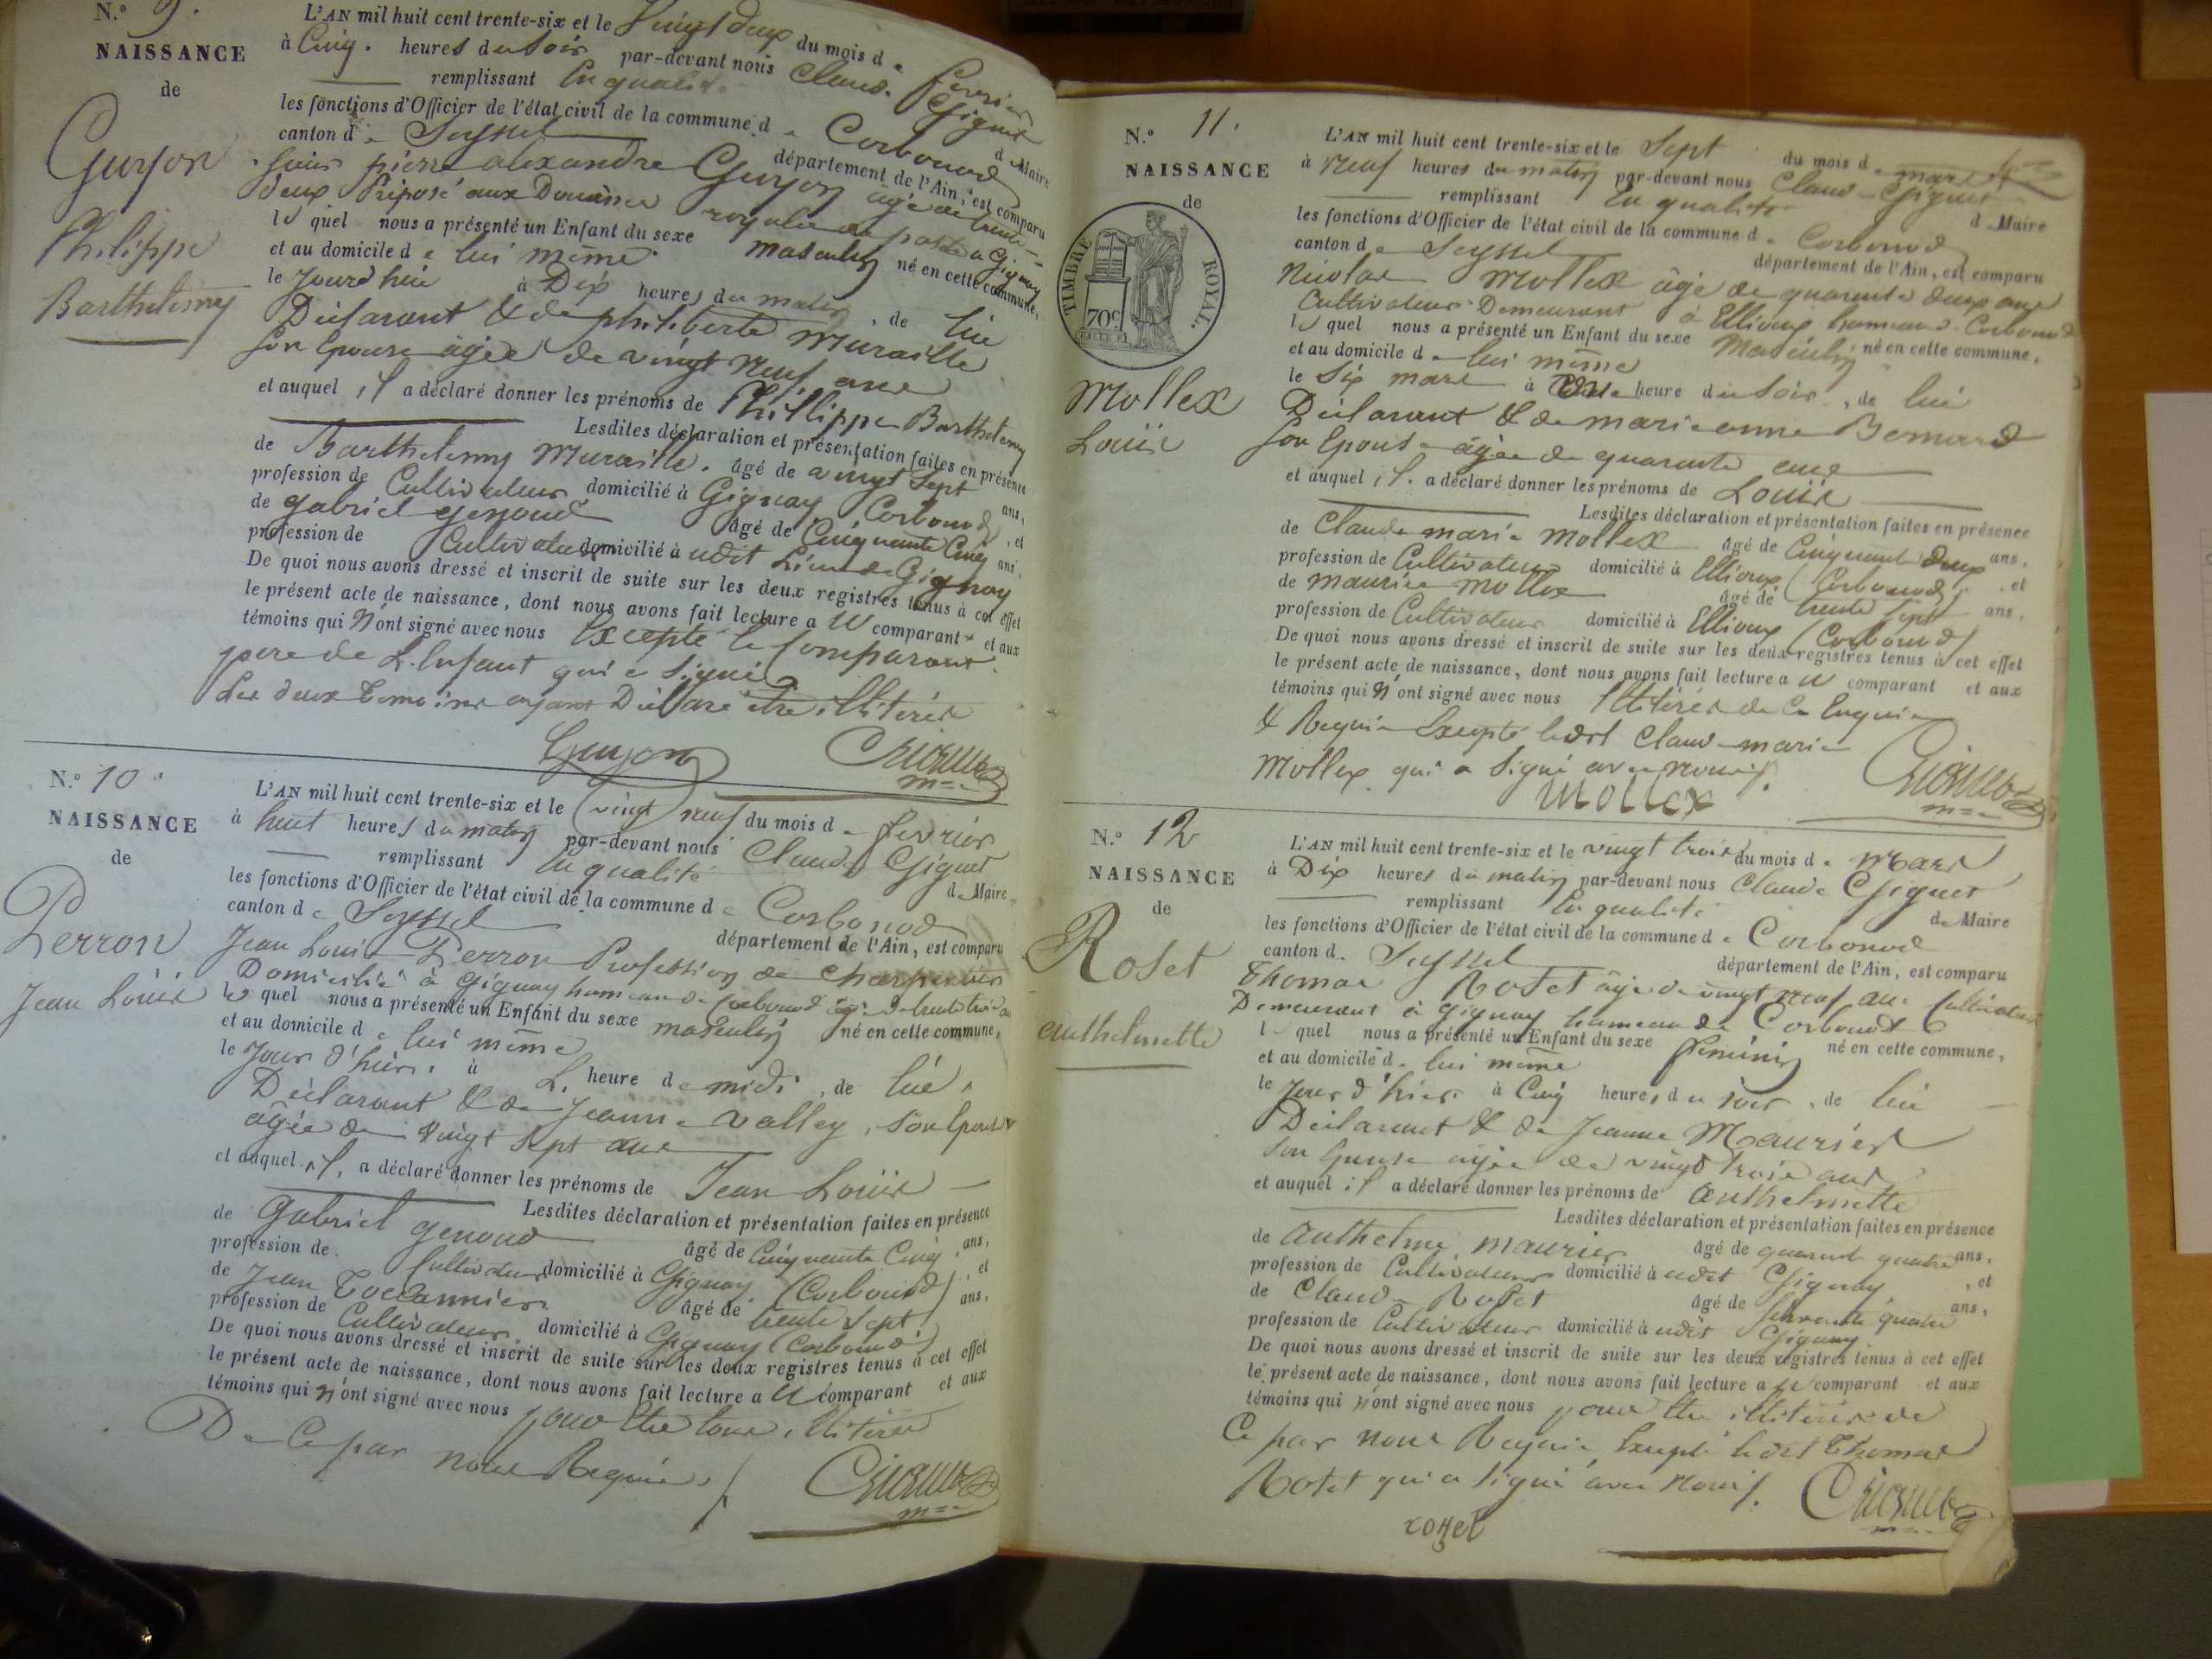 N.° 9.
NAISSANCE
de
Guyon
Philippe
Barthelemy
L'AN mil huit cent trente-six et le Vingt deux du mois de fevrier
à Cinq. heures du Soir par-devant nous Claude Gignet
remplissant En qualité de Maire
les fonctions d'Officier de l'état civil de la commune de Corbonod
canton de Seyssel département de l'Ain, est comparu
Sieur pierre alexandre Guyon âgé de trente
deux Préposé aux Douanes royales au poste a Gignay
lequel nous a présenté un Enfant du sexe masculin né en cette commune,
et au domicile de lui même
le Jourd'hui à Dix heures du matin, de lui
Déclarant & de philiberte Muraille
son Epouse âgée de vingt neuf ans
et auquel il a déclaré donner les prénoms de Phillippe Barthelemy
Lesdites déclaration et présentation faites en présence
de Barthelemy Muraille. âgé de vingt Sept ans,
profession de Cultivateur domicilié à Gignay Corbonod, et
de gabriel genoud âgé de Cinquante Cinq ans,
profession de Cultivateur domicilié à udit Lieu de Gignay
De quoi nous avons dressé et inscrit de suite sur les deux registres tenus à cet effet
le présent acte de naissance, dont nous avons fait lecture au comparant et aux
témoins qui n'ont signé avec nous Excepté le Comparant
pere de L'Enfant qui a Signé
Les deux Temoins ayant Déllaré être illitérés
Guyon
N.° 10.
NAISSANCE
de
Perron
Jean Loüis
L'AN mil huit cent trente-six et le vingt neuf du mois de fevrier
à huit heures du matin par-devant nous Claude Gignet
remplissant En qualité de Maire,
les fonctions d'Officier de l'état civil de la commune de Corbonod
canton de Seyssel département de l'Ain, est comparu
Jean Louis Perron Profession de charpentier
Domicilié à gignay hameau de Corbonod âgé de trente trois ans
lequel nous a présenté un Enfant du sexe masculin né en cette commune,
et au domicile de lui même
le Jour d'hier. à L. heure de midi, de lui
Déclarant & de Jeanne Valley, son Epouse
âgée de vingt sept ans
et auquel il, a déclaré donner les prénoms de Jean Loüis
Lesdites déclaration et présentation faites en présence
de Gabriel genoud âgé de Cinquante Cinq ans,
profession de Cultivateur domicilié à Gignay (Corbonod), et
de Jean âgé de trente Sept ans,
profession de Cultivateur domicilié à Gignay (Corbonod)
De quoi nous avons dressé et inscrit de suite sur les deux registres tenus à cet effet
le présent acte de naissance, dont nous avons fait lecture au comparant et aux
témoins qui n'ont signé avec nous pour être tous illitérés
De Ce par nous Requis
N.° 11.
NAISSANCE
de
TIMBRE ROYAL.
70c
Mollex
Loüis
L'AN mil huit cent trente-six et le Sept du mois de mars
à neuf heures du matin par-devant nous Claude Gignet
remplissant En qualité de Maire
les fonctions d'Officier de l'état civil de la commune de Corbonod
canton de Seyssel département de l'Ain, est comparu
Nicolas Mollex âgé de quarante deux ans
Cultivateur Demeurant à Ellioux hameau de Corbonod
lequel nous a présenté un Enfant du sexe Masculin né en cette commune,
et au domicile de lui même
le Six mars à une heure du Soir, de lui
Déclarant & de marianne Bornard
son Epouse âgée de quarante ans
et auquel il. a déclaré donner les prénoms de Loüis
Lesdites déclaration et présentation faites en présence
de Claude marie Mollex âgé de Cinquante deux ans,
profession de Cultivateur domicilié à Ellioux (Corbonod), et
de maurice mollex âgé de trente Sept ans,
profession de Cultivateur domicilié à Ellioux (Corbonod)
De quoi nous avons dressé et inscrit de suite sur les deux registres tenus à cet effet
le présent acte de naissance, dont nous avons fait lecture au comparant et aux
témoins qui n'ont signé avec nous Illitérés de Ce Enquis
& Requis Excepté ledit Claude marie
Mollex qui a Signé avec nous.
Mollex
N.° 12
NAISSANCE
de
Roset
Anthelmette
L'AN mil huit cent trente-six et le vingt trois du mois de Mars
à Dix heures du matin par-devant nous Claude Gignet
remplissant En qualité de Maire
les fonctions d'Officier de l'état civil de la commune de Corbonod
canton de Seyssel département de l'Ain, est comparu
Thomas Roset âgé de vingt neuf ans Cultivateur
Demeurant à Gignay hameau de Corbonod
lequel nous a présenté un Enfant du sexe féminin né en cette commune,
et au domicile de lui même
le Jour d'hier à Cinq heures du soir, de lui
Déclarant & de Jeanne Maurier
son Epouse âgée de vingt trois ans
et auquel il a déclaré donner les prénoms de Anthelmette
Lesdites déclaration et présentation faites en présence
de Anthelme maurier âgé de quarante quatre ans,
profession de Cultivateur domicilié à udit Gignay, et
de Claude Roset âgé de Soixante quatre ans,
profession de Cultivateur domicilié à udit Gignay
De quoi nous avons dressé et inscrit de suite sur les deux registres tenus à cet effet
le présent acte de naissance, dont nous avons fait lecture au comparant et aux
témoins qui n'ont signé avec nous pour être illitérés de
Ce par nous Requis Excepté ledit Thomas
Roset qui a signé avec nous.
rozet